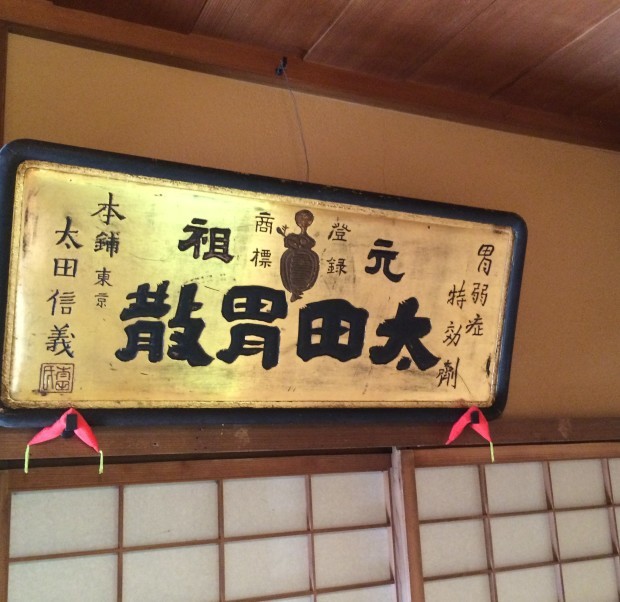 胃弱症
特効剤
元祖
登録
商標
太田胃散
本鋪 東京
太田信義